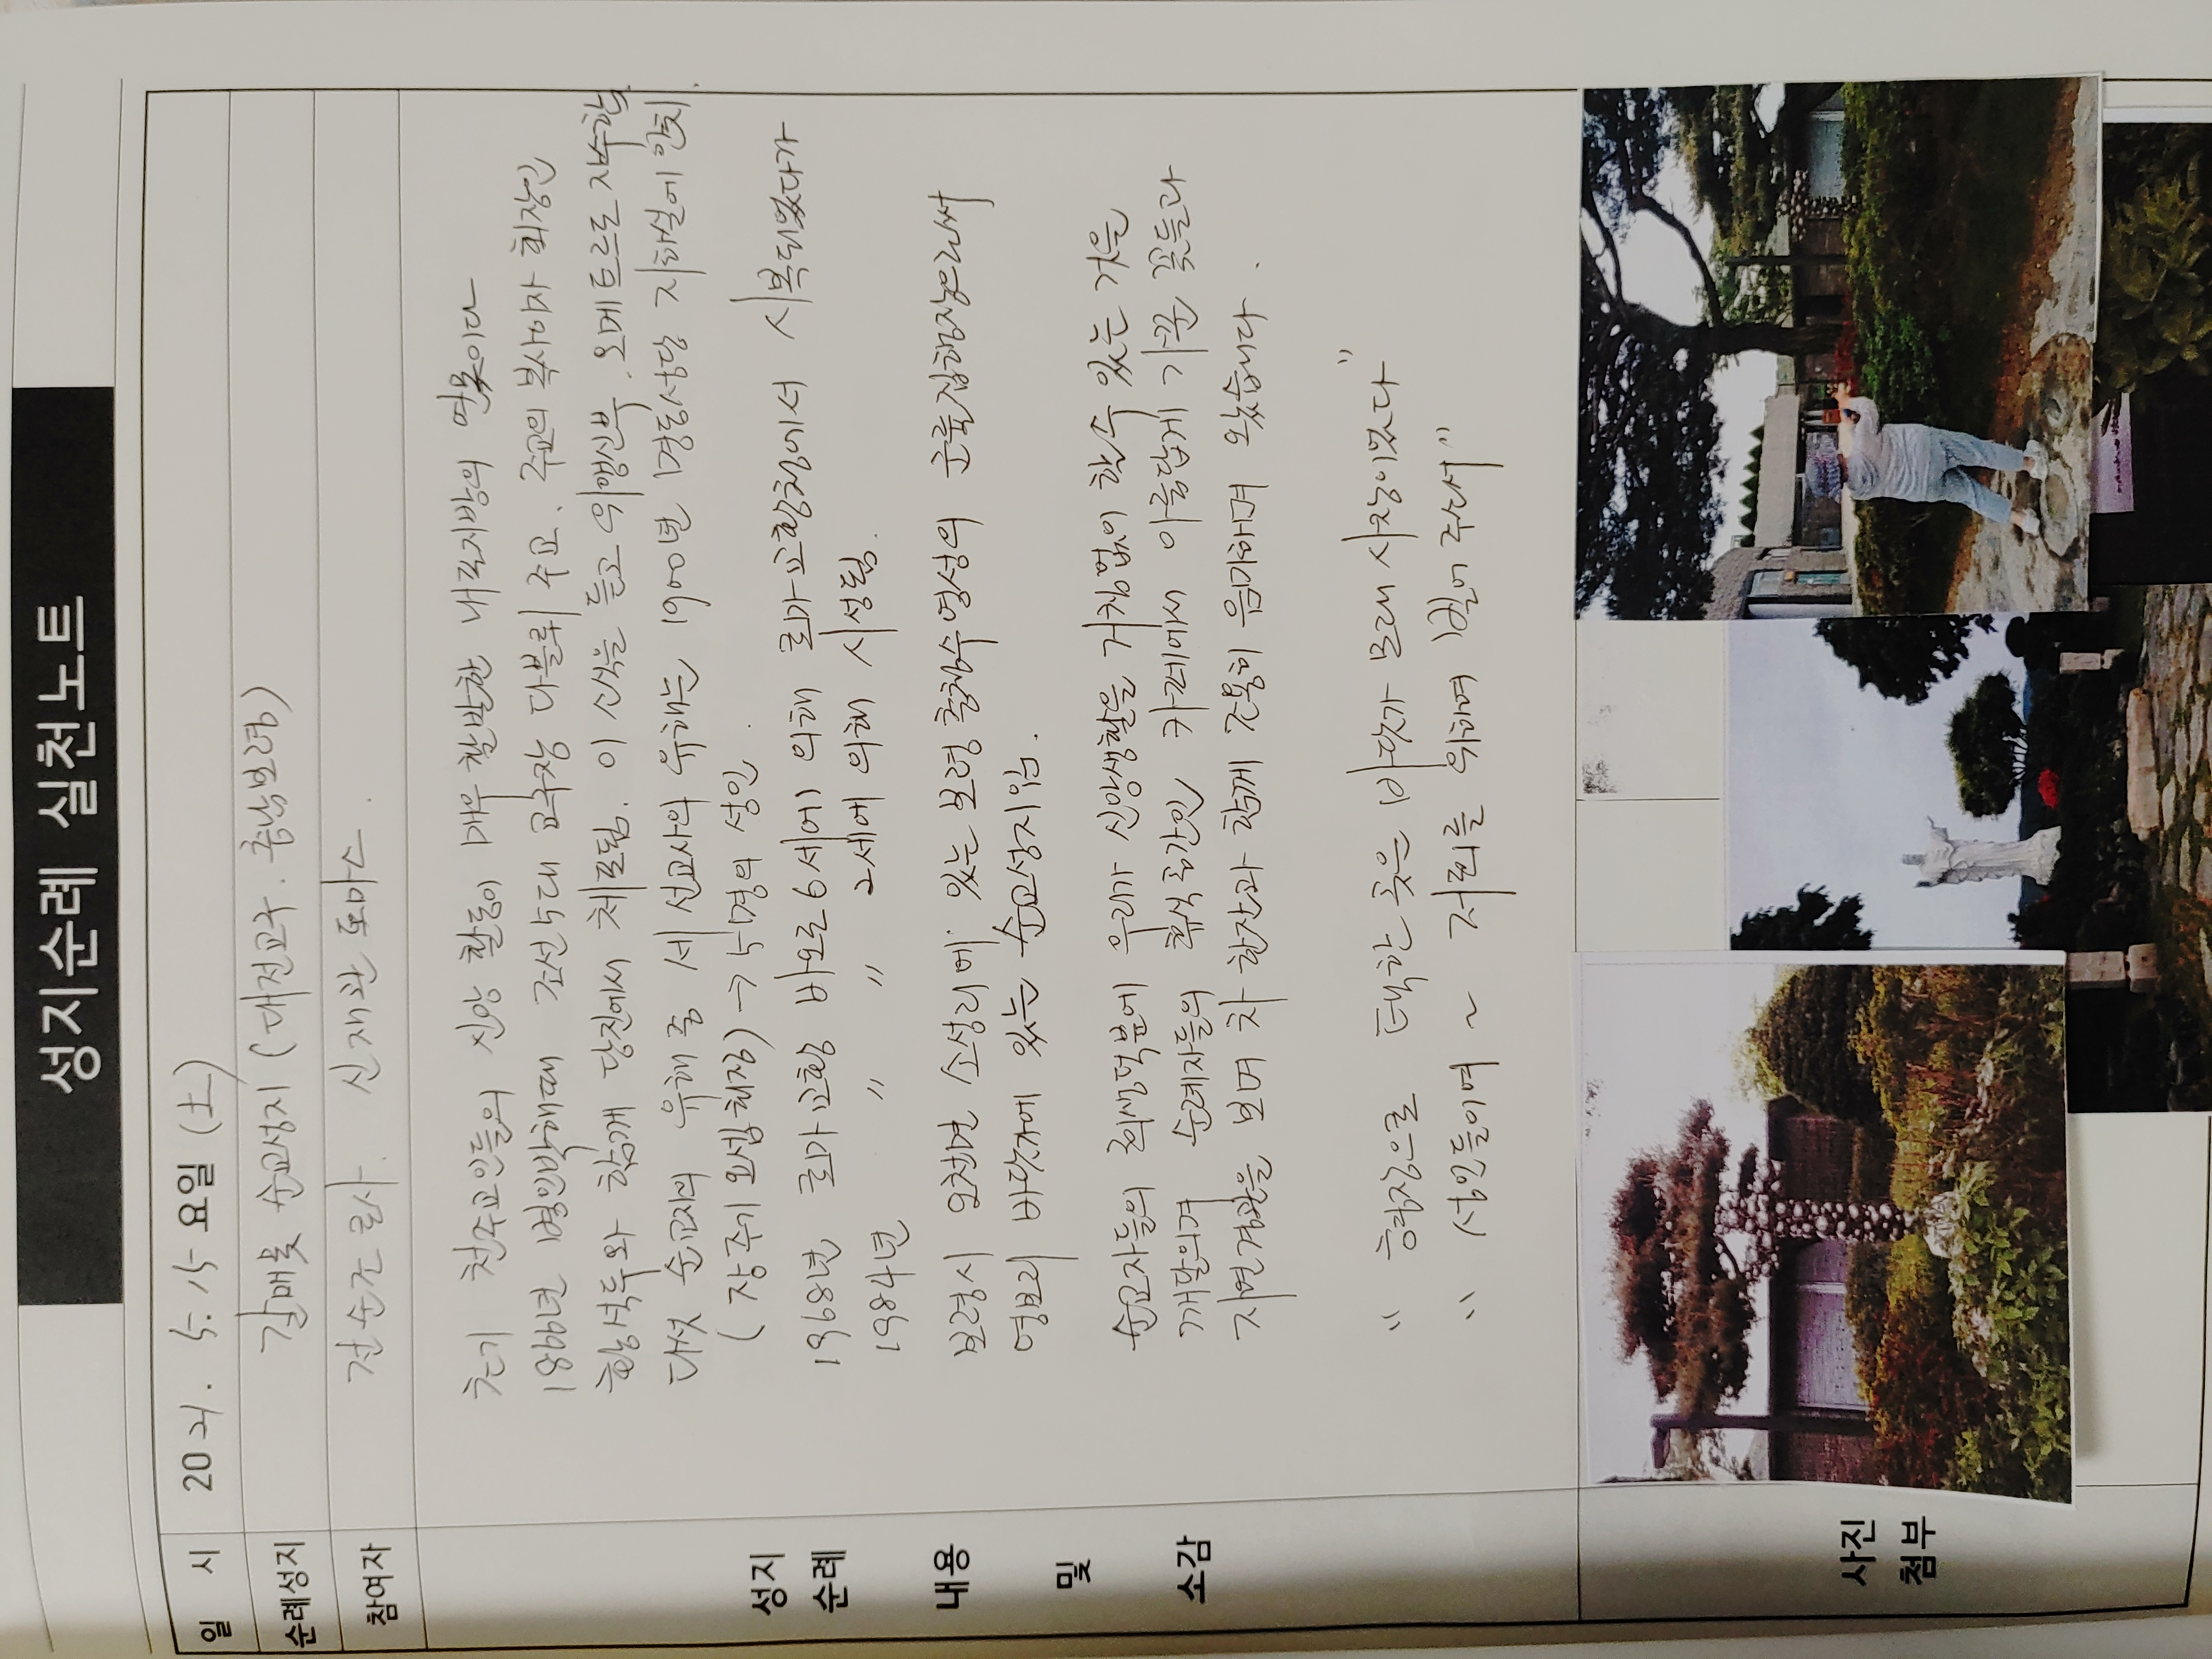 성지순례 실천노트
일 시 2021. 5. 15 요일 (土)
순례성지 갈매못 순교성지 (대전교구. 충남보령)
참여자 전순조 로사. 신재관 토마스
초기 천주교인들의 신앙 활동이 매우 활발한 내포지방의 연못이다
1866년 병인박해때 조선5대 교구장 다블뤼 주교, 주교의 복사이자 회장인
황석두와 함께 당진에서 체포됨. 이 소식을 듣고 위앵신부. 오메트르도 자수함
다섯 순교자의 유해 중 세 선교사의 유해는 1900년 명동성당 지하실에 안치.
(장주기 요셉 채정) → 5명의 성인.
1968년 로마교황 바오로6세에 의해 로마교황청에서 시복되었다가
1984년 〃 〃 2세에 의해 시성됨.
보령시 오천면 소성리에 있는 보령충청수영성의 군율집행장으로써
영보리 바닷가에 있는 순교성지임.
순교자들의 희생덕분에 우리가 신앙생활을 거침없이 할수 있는 것을
깨달으며 순례자들의 휴식공간인, 카페에서 아름답게 가꾼 꽃들과
자연경관을 보며 차 한잔과 함께 조용히 음미하며 왔습니다.
" 형장으로 택한 곳은 바닷가 모래 사장이었다"
" 성인들이여 ~ 저희를 위하여 빌어 주소서"
성지
순례
내용
및
소감
사진
첨부